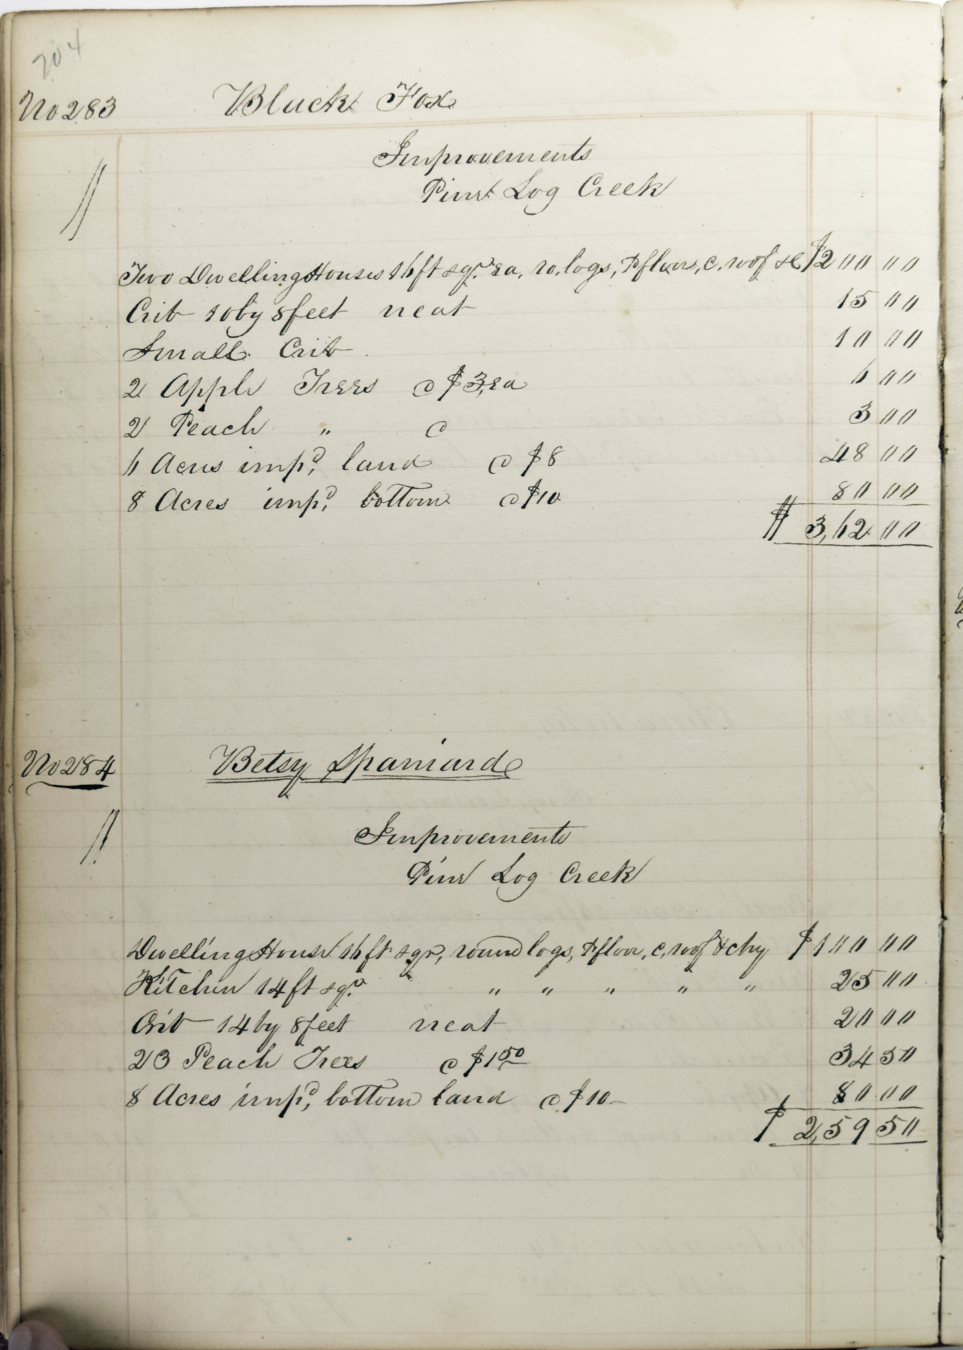 204
No 283 Black Fox
Improvements
Pine Log Creek
Two Dwelling Houses 16 ft sqr. ea, ro. logs, P floors, c. roof &c $200 00
Crib 10 by 8 feet neat 15 00
Small Crib 10 00
2 Apple Trees @ $3, ea 6 00
2 Peach " @ 3 00
6 Acres impd, land @ $8 48 00
8 Acres impd, bottom @ $10 80 00
$ 3,62 00
No 284 Betsy Spaniard
Improvements
Pine Log Creek
Dwelling House 16 ft sqr, round logs, P floor, c, roof & chy $100 00
Kitchin 14 ft sqr. " " " " " 25 00
Crib 14 by 8 feet neat 20 00
23 Peach Trees @ $1 50 34 50
8 Acres impd, bottom land @ $10 80 00
$ 2,59 50